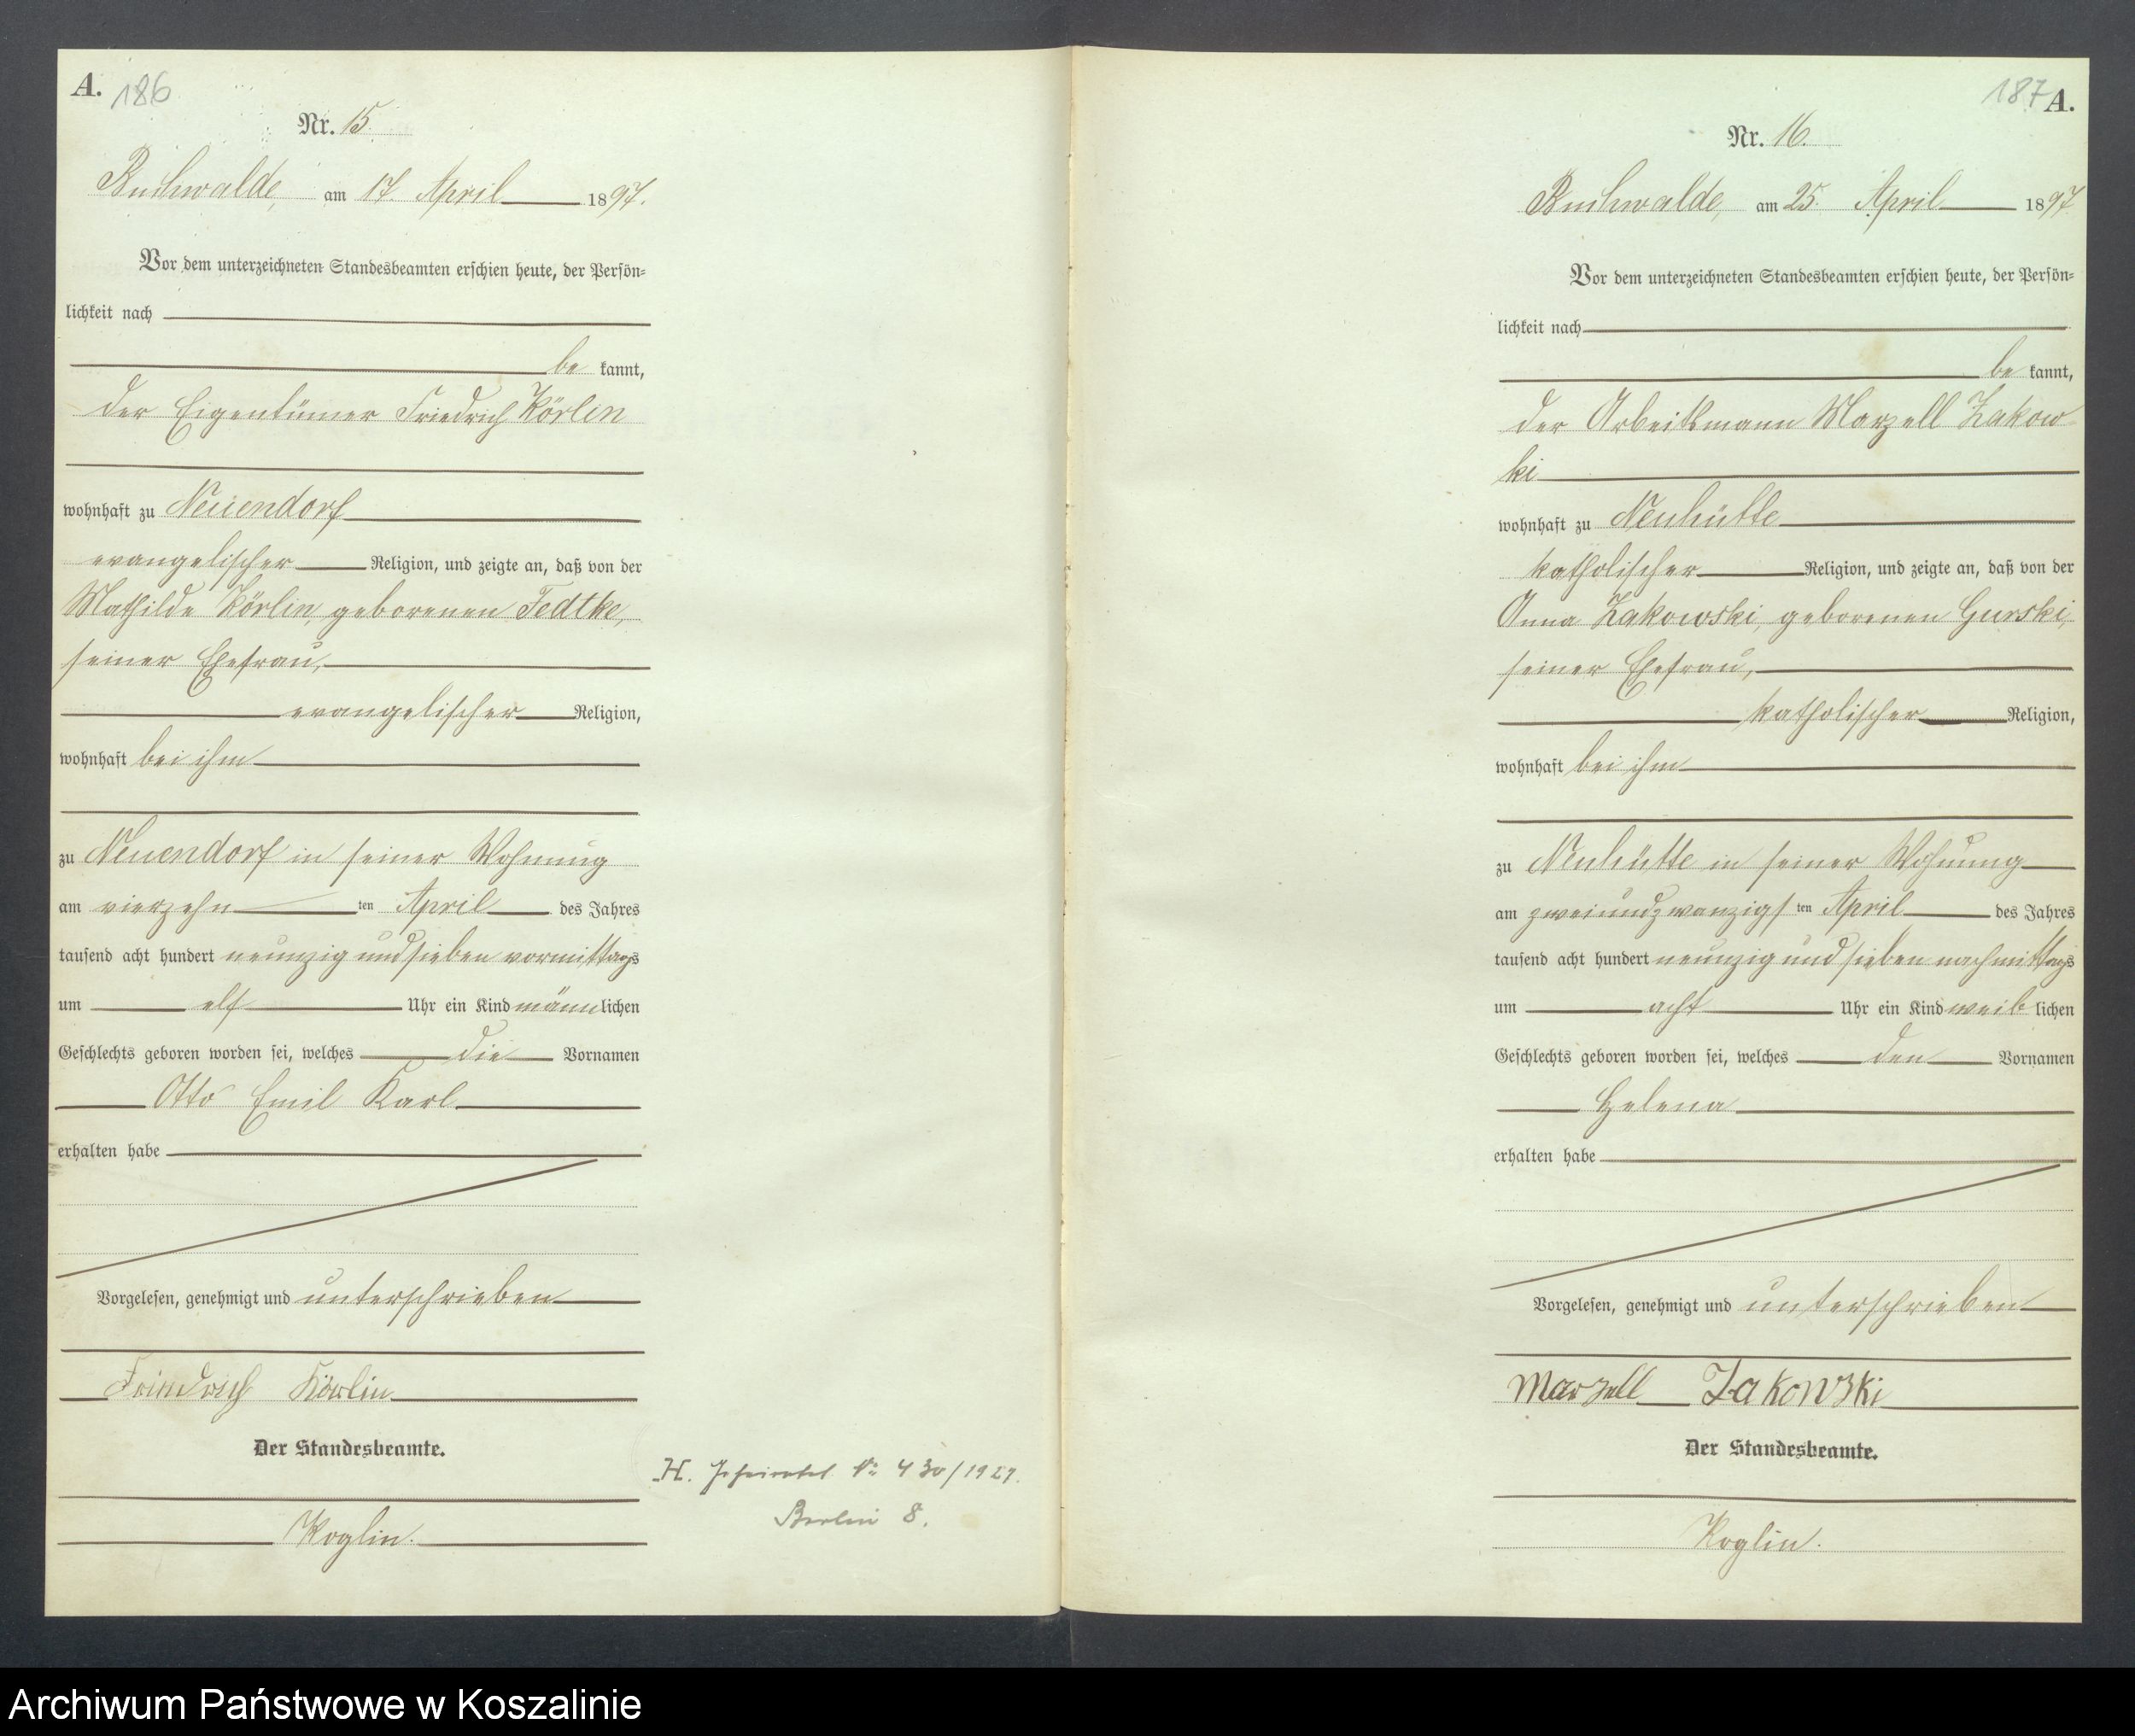 A. 186
Nr. 15.
Buchwalde, am 17. April 1897.
Vor dem unterzeichneten Standesbeamten erschien heute, der Persön=
lichkeit nach
be kannt,
der Eigentümer Friedrich Körlin
wohnhaft zu Neuendorf
evangelischer Religion, und zeigte an, daß von der
Mathilde Körlin, geborenen Fedtke,
seiner Ehefrau,
evangelischer Religion,
wohnhaft bei ihm
zu Neuendorf in seiner Wohnung
am vierzehn ten April des Jahres
tausend acht hundert neunzig und sieben vormittags
um elf Uhr ein Kind männlichen
Geschlechts geboren worden sei, welches die Vornamen
Otto Emil Karl
erhalten habe
Vorgelesen, genehmigt und unterschrieben
Friedrich Körlin
Der Standesbeamte.
Koglin.
H. Geheiratet Nr 430/1927.
Berlin 8.
187 A.
Nr. 16.
Buchwalde, am 25. April 1897
Vor dem unterzeichneten Standesbeamten erschien heute, der Persön=
lichkeit nach
be kannt,
der Arbeitsmann Marzell Zakow
ki
wohnhaft zu Neuhütte
katholischer Religion, und zeigte an, daß von der
Anna Zakowski, geborenen Gurski,
seiner Ehefrau,
katholischer Religion,
wohnhaft bei ihm
zu Neuhütte in seiner Wohnung
am zweiundzwanzigs ten April des Jahres
tausend acht hundert neunzig und sieben nachmittags
um acht Uhr ein Kind weib lichen
Geschlechts geboren worden sei, welches den Vornamen
Helena
erhalten habe
Vorgelesen, genehmigt und unterschrieben
Marzell Zakowski
Der Standesbeamte.
Koglin.
Archiwum Państwowe w Koszalinie